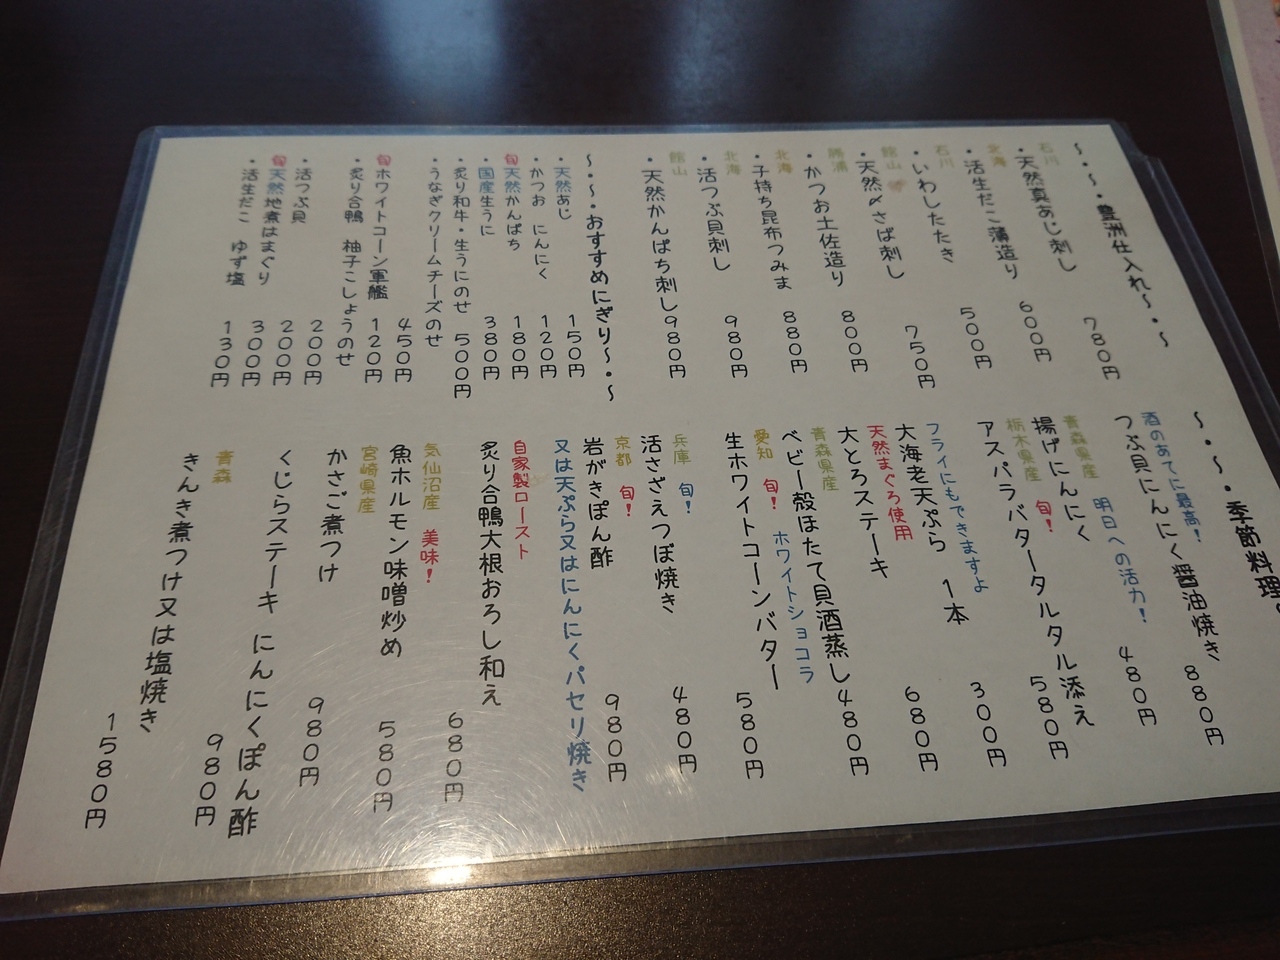 ～・～・豊洲仕入れ～・～
石川
・天然真あじ刺し 780円
北海
・活生だこ薄造り 600円
石川
・いわしたたき 500円
館山
・天然〆さば刺し 750円
勝浦
・かつお土佐造り 800円
北海
・子持ち昆布つみま 880円
北海
・活つぶ貝刺し 980円
館山
・天然かんぱち刺し 980円
～・～・おすすめにぎり～・～
・天然あじ 150円
・かつお にんにく 120円
旬天然かんぱち 180円
・国産生うに 380円
・炙り和牛・生うにのせ 500円
・うなぎクリームチーズのせ 450円
旬ホワイトコーン軍艦 120円
・炙り合鴨 柚子こしょうのせ 200円
・活つぶ貝 200円
旬天然地煮はまぐり 300円
・活生だこ ゆず塩 130円
～・～・季節料理
酒のあてに最高！
つぶ貝にんにく醤油焼き 880円
青森県産 明日への活力！
揚げにんにく 480円
栃木県産 旬！
アスパラバタータルタル添え 580円
フライにもできますよ
大海老天ぷら 1本 300円
天然まぐろ使用
大とろステーキ 680円
青森県産
ベビー殻ほたて貝酒蒸し 480円
愛知 旬！ ホワイトショコラ
生ホワイトコーンバター 580円
兵庫 旬！
活さざえつぼ焼き 480円
京都 旬！
岩がきぽん酢 980円
又は天ぷら又はにんにくパセリ焼き
自家製ロースト
炙り合鴨大根おろし和え 680円
気仙沼産 美味！
魚ホルモン味噌炒め 580円
宮崎県産
かさご煮つけ 980円
くじらステーキ にんにくぽん酢 980円
青森
きんき煮つけ又は塩焼き 1580円